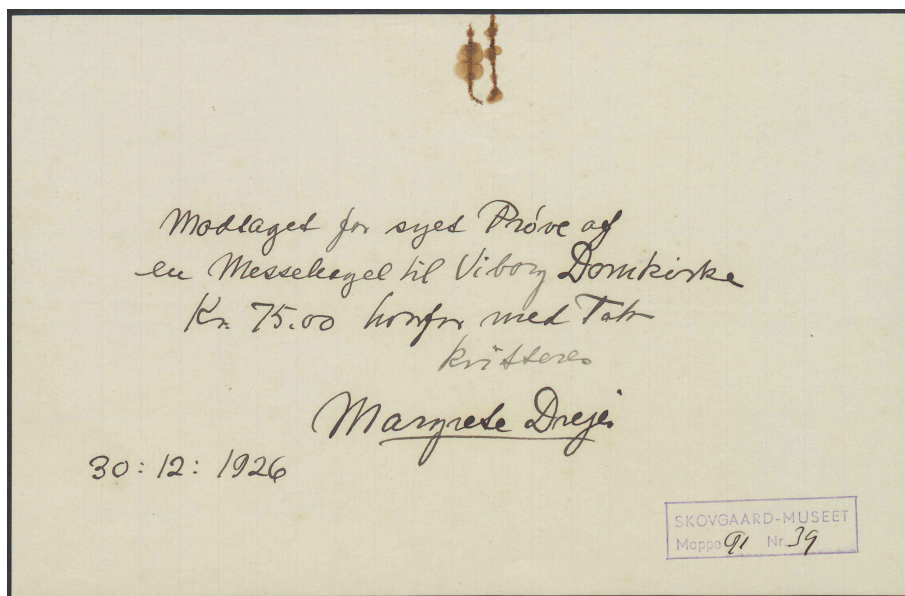 Modtaget for syet Prøve af
en Messehagel til Viborg Domkirke
Kr. 75.00 hvorfor med Tak
kvitteres
Margrete Drejer
30:12: 1926
SKOVGAARD-MUSEET
Mappe 91 Nr. 39